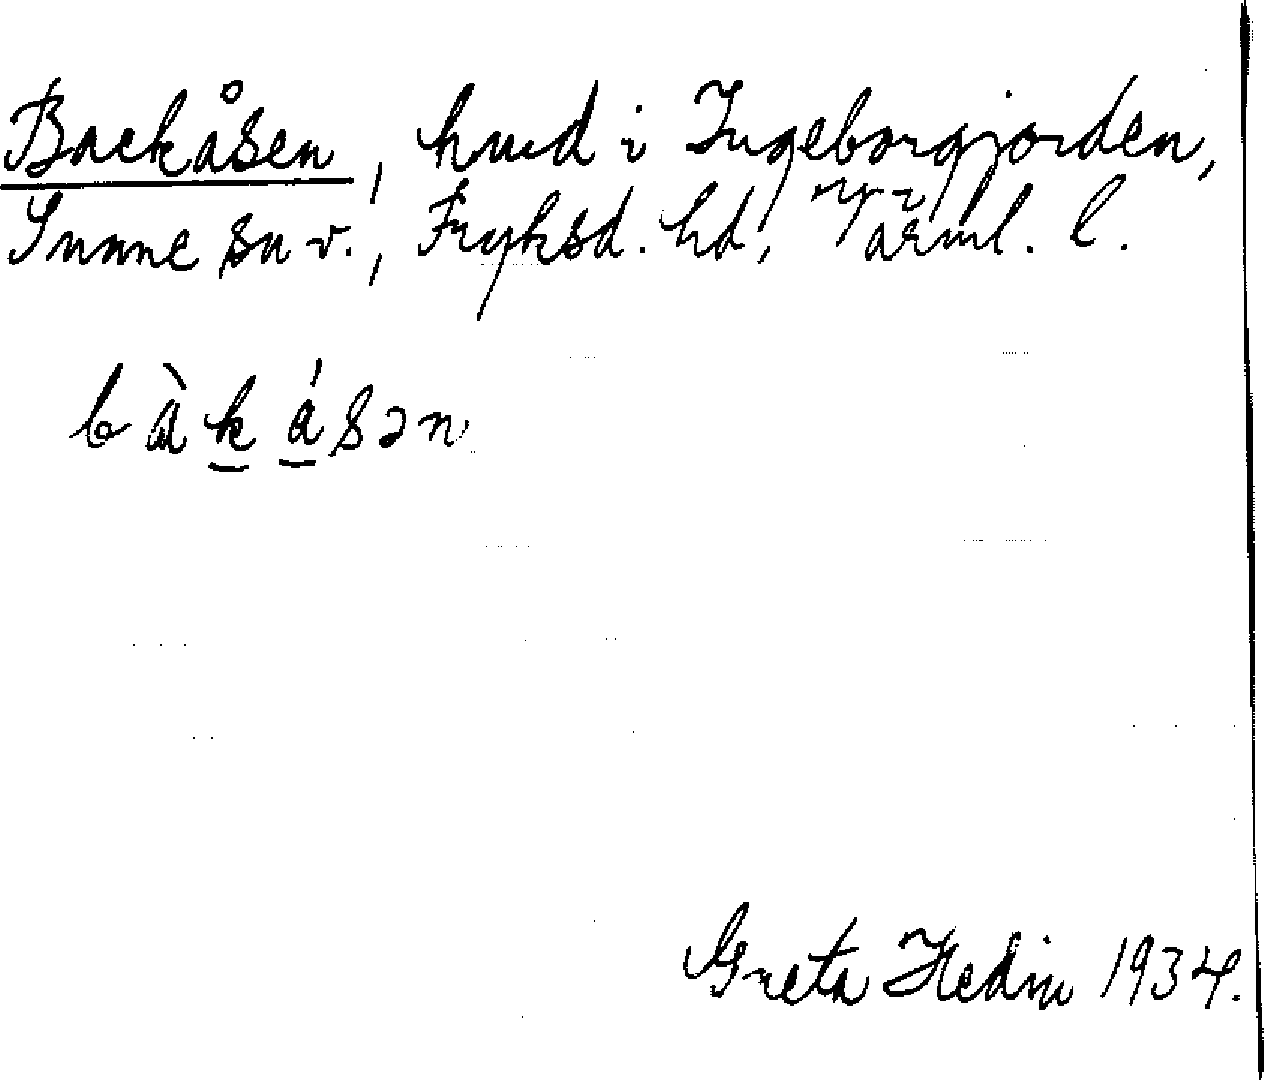 Backåsen, hmd i Ingeborgjorden,
Sunne sn v., Fryksd. hd, Värml. l.
bàk ásən
Greta Hedin 1934.